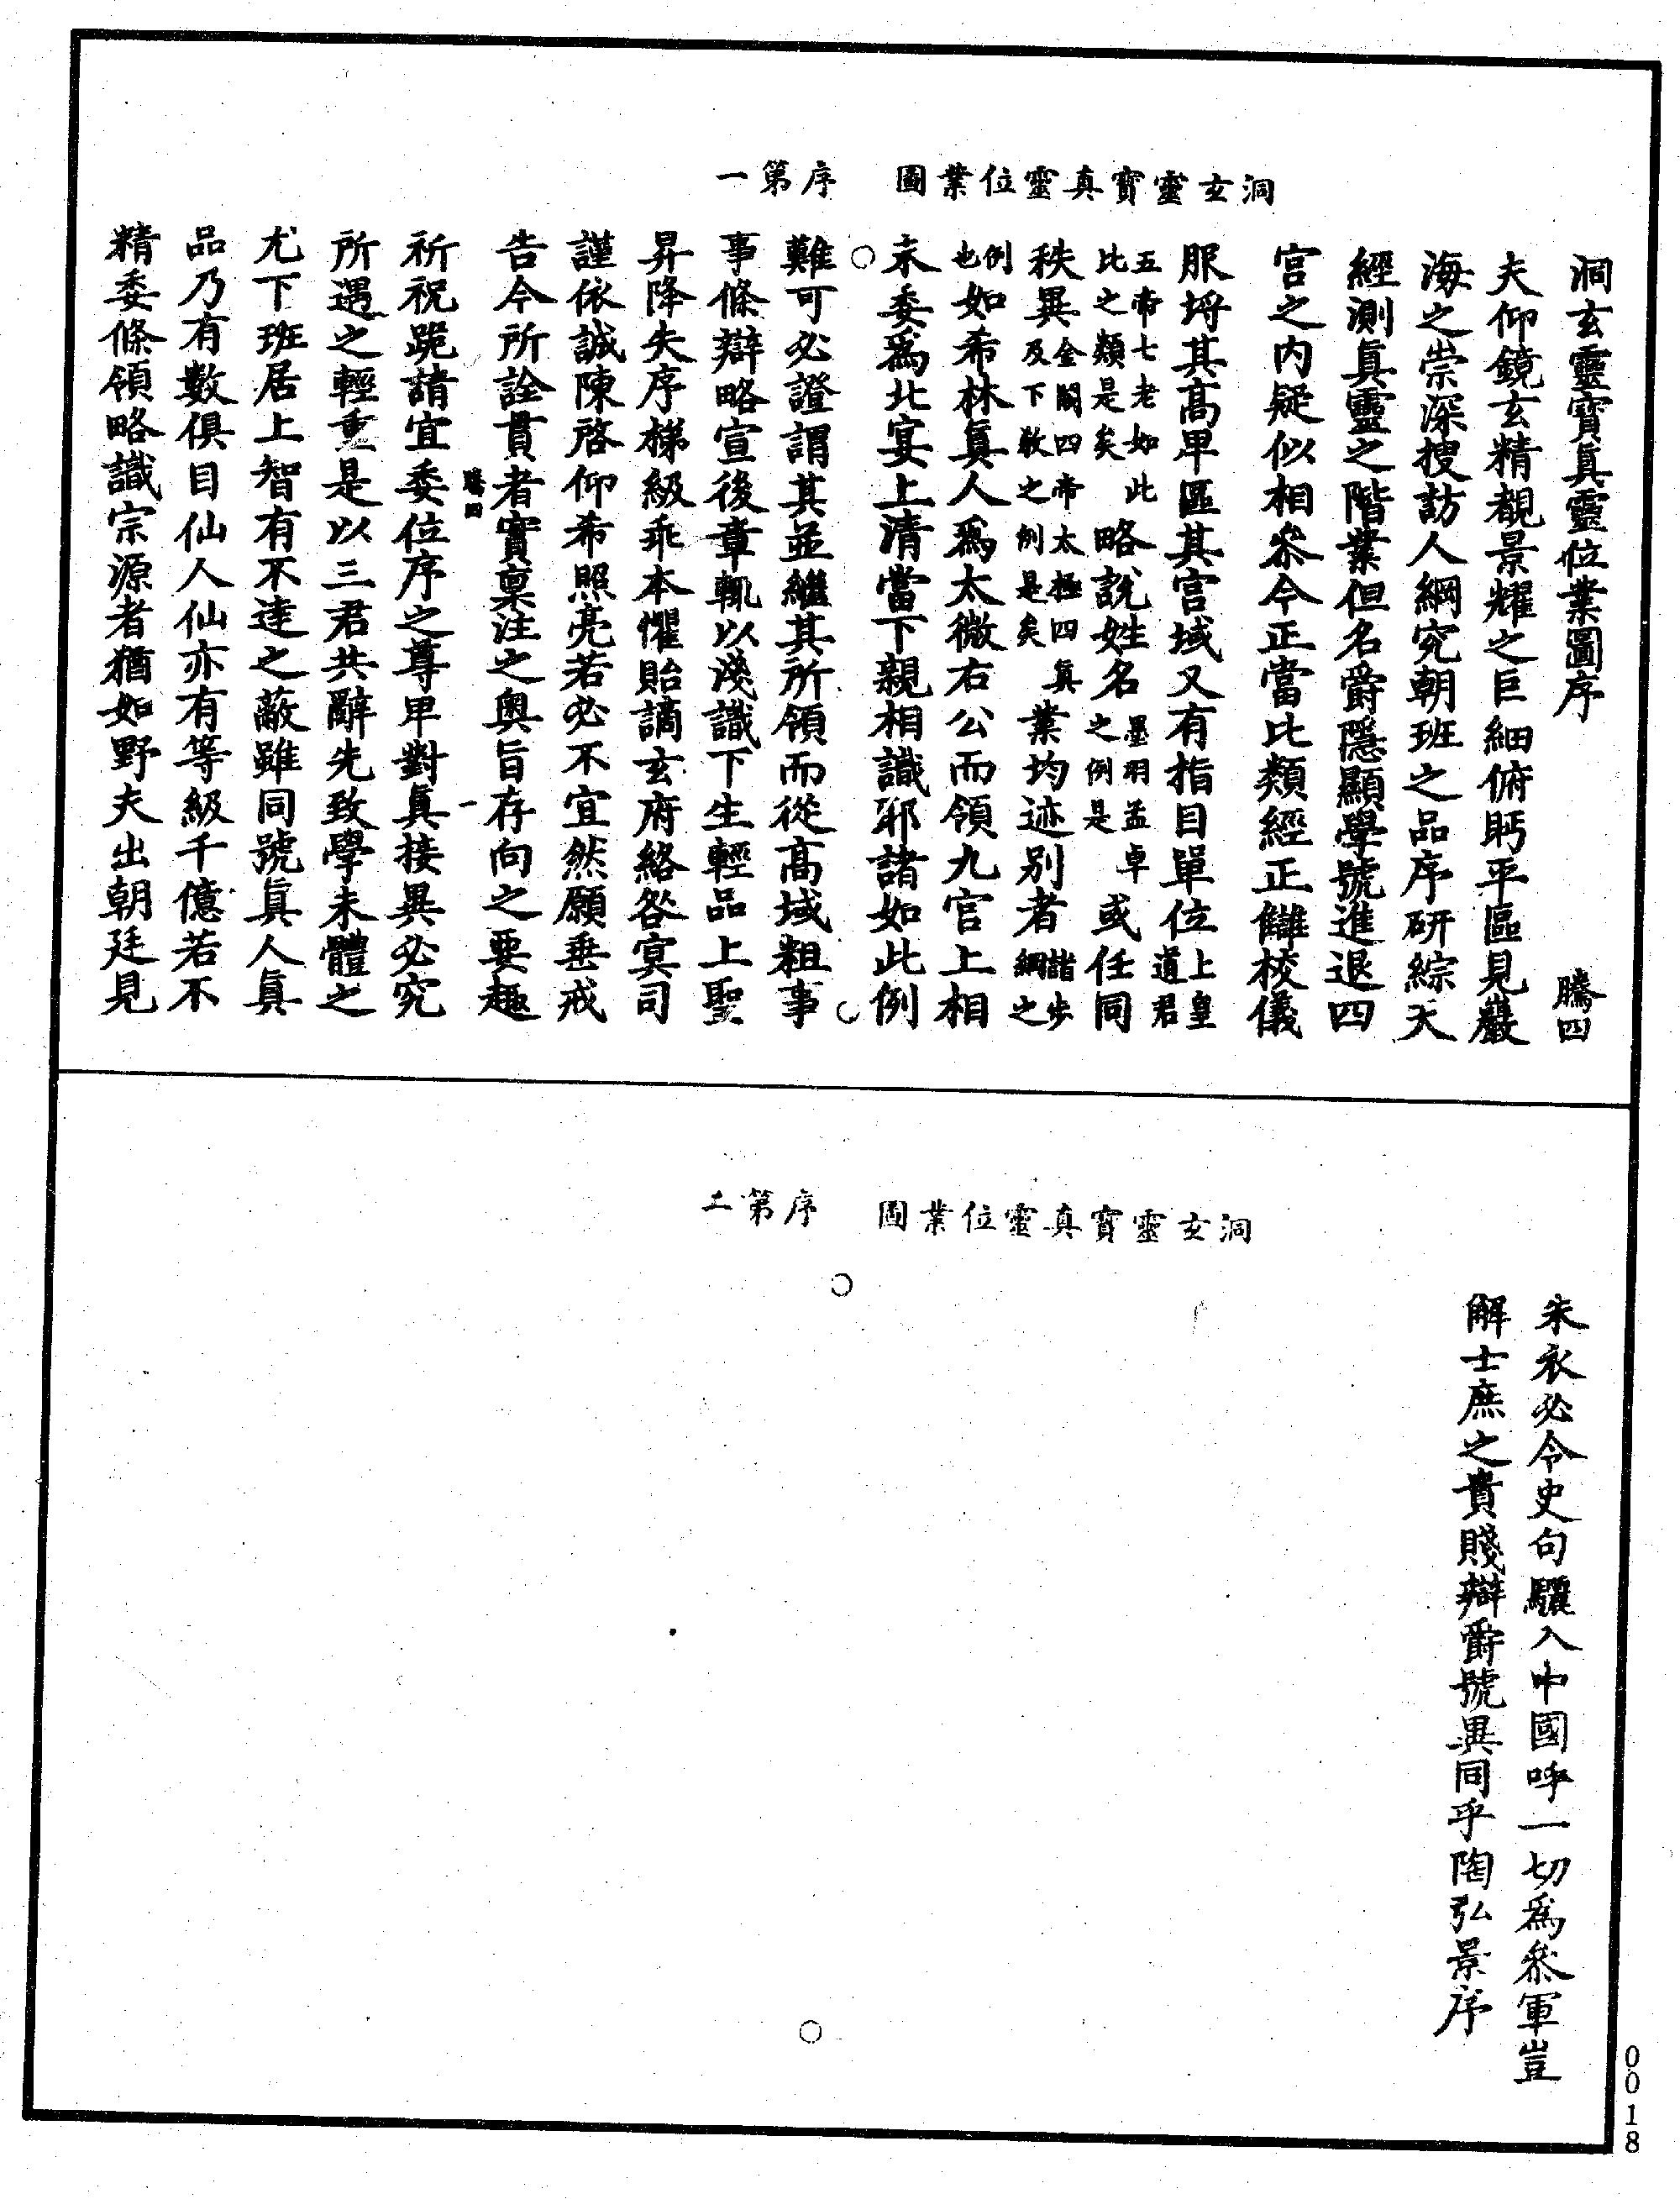 洞玄靈寶真靈位業圖　序第一
洞玄靈寶真靈位業圖序　　騰四
夫仰鏡玄精覩景耀之巨細俯眄平區見巖
海之崇深搜訪人綱究朝班之品序研綜天
經測真靈之階業但名爵隱顯學號進退四
宫之内疑似相叅今正當比類經正讎校儀
服埒其高卑區其宫域又有指目單位上皇道君
五帝七老如此比之類是矣略説姓名墨羽孟卓之例是或任同
秩異金闕四帝太極四真及下教之例是矣業均迹别者諸步綱之
例也如希林真人爲太微右公而領九官上相
未委爲北宴上清當下親相識耶諸如此例
難可必證謂其並繼其所領而從高域粗事
事條辯略宣後章輒以淺識下生輕品上聖
昇降失序梯級乖本懼貽謫玄府絡咎冥司
謹依誠陳啓仰希照亮若必不宜然願垂戒
告今所詮貫者實稟注之奥旨存向之要趣
騰四　一
祈祝跪請宜委位序之尊卑對真接異必究
所遇之輕重是以三君共辭先致學未體之
尤下班居上智有不達之蔽雖同號真人真
品乃有數俱目仙人仙亦有等級千億若不
精委條領略識宗源者猶如野夫出朝廷見
洞玄靈寶真靈位業圖　序第二
朱衣必令史句驪入中國呼一切爲叅軍豈
解士庶之貴賤辯爵號異同乎陶弘景序
0018